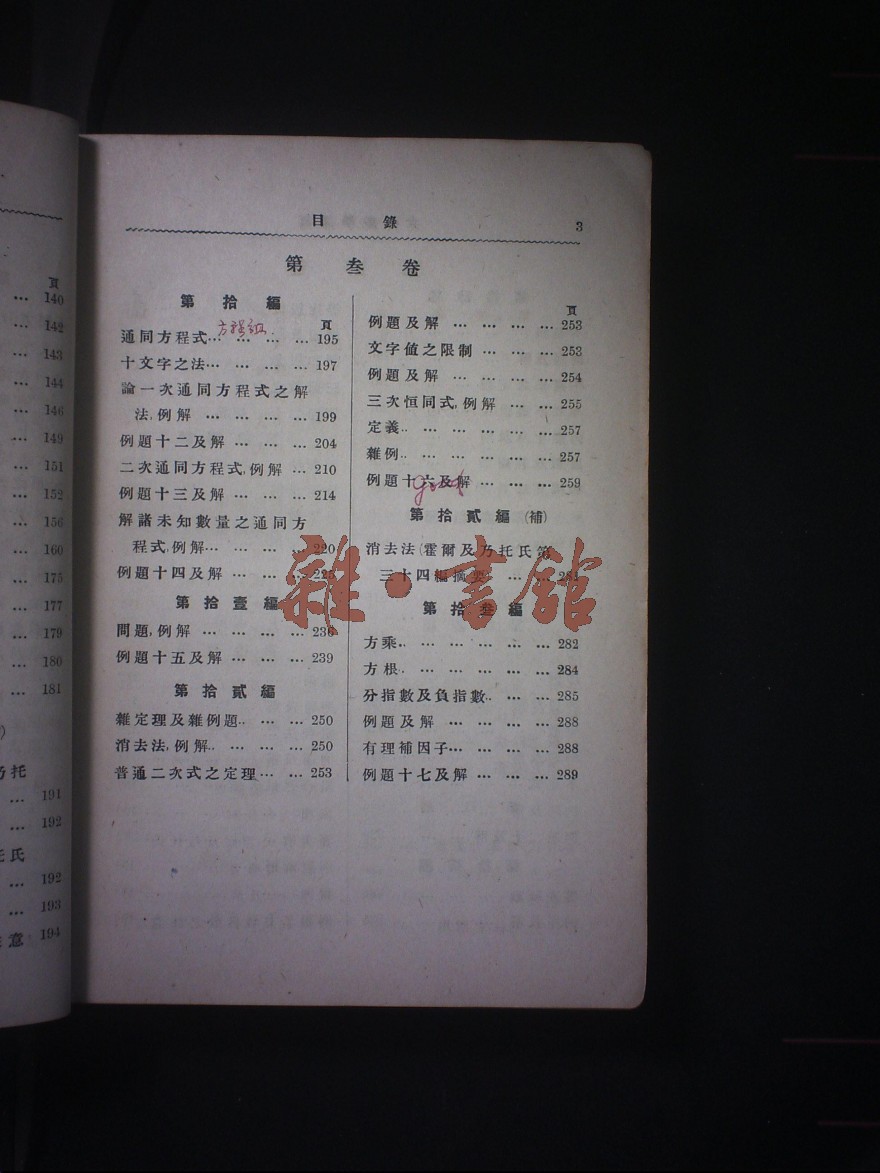 頁
… 140
… 142
… 143
… 144
… 146
… 149
… 151
… 152
… 156
… 160
… 175
… 177
… 179
… 180
… 181
乃托
… 191
… 192
氏
… 192
… 193
意 194
目 錄 3
第 叁 卷
第 拾 編
頁
方程組
通同方程式… … … … 195
十文字之法… … … … 197
論一次通同方程式之解
法,例解 … … … … 199
例題十二及解 … … … 204
二次通同方程式,例解 … 210
例題十三及解 … … … 214
解諸未知數量之通同方
程式,例解… … … … 220
例題十四及解 … … … 225
第 拾 壹 編
問題,例解 … … … … 236
例題十五及解 … … … 239
第 拾 貳 編
雜定理及雜例題.. … … 250
消去法,例解.. … … … 250
普通二次式之定理… … 253
頁
例題及解 … … … … 253
文字値之限制 … … … 253
例題及解 … … … … 254
三次恒同式,例解 … … 255
定義.. … … … … … 257
雜例.. … … … … … 257
例題十六及解 … … … 259
good
第 拾 貳 編 (補)
消去法(霍爾及乃托氏第
三十四編摘要) … … 281
第 拾 叁 編
方乘.. … … … … … 282
方根.. … … … … … 284
分指數及負指數.. … … 285
例題及解 … … … … 288
有理補因子… … … … 288
例題十七及解 … … … 289
雜·書館